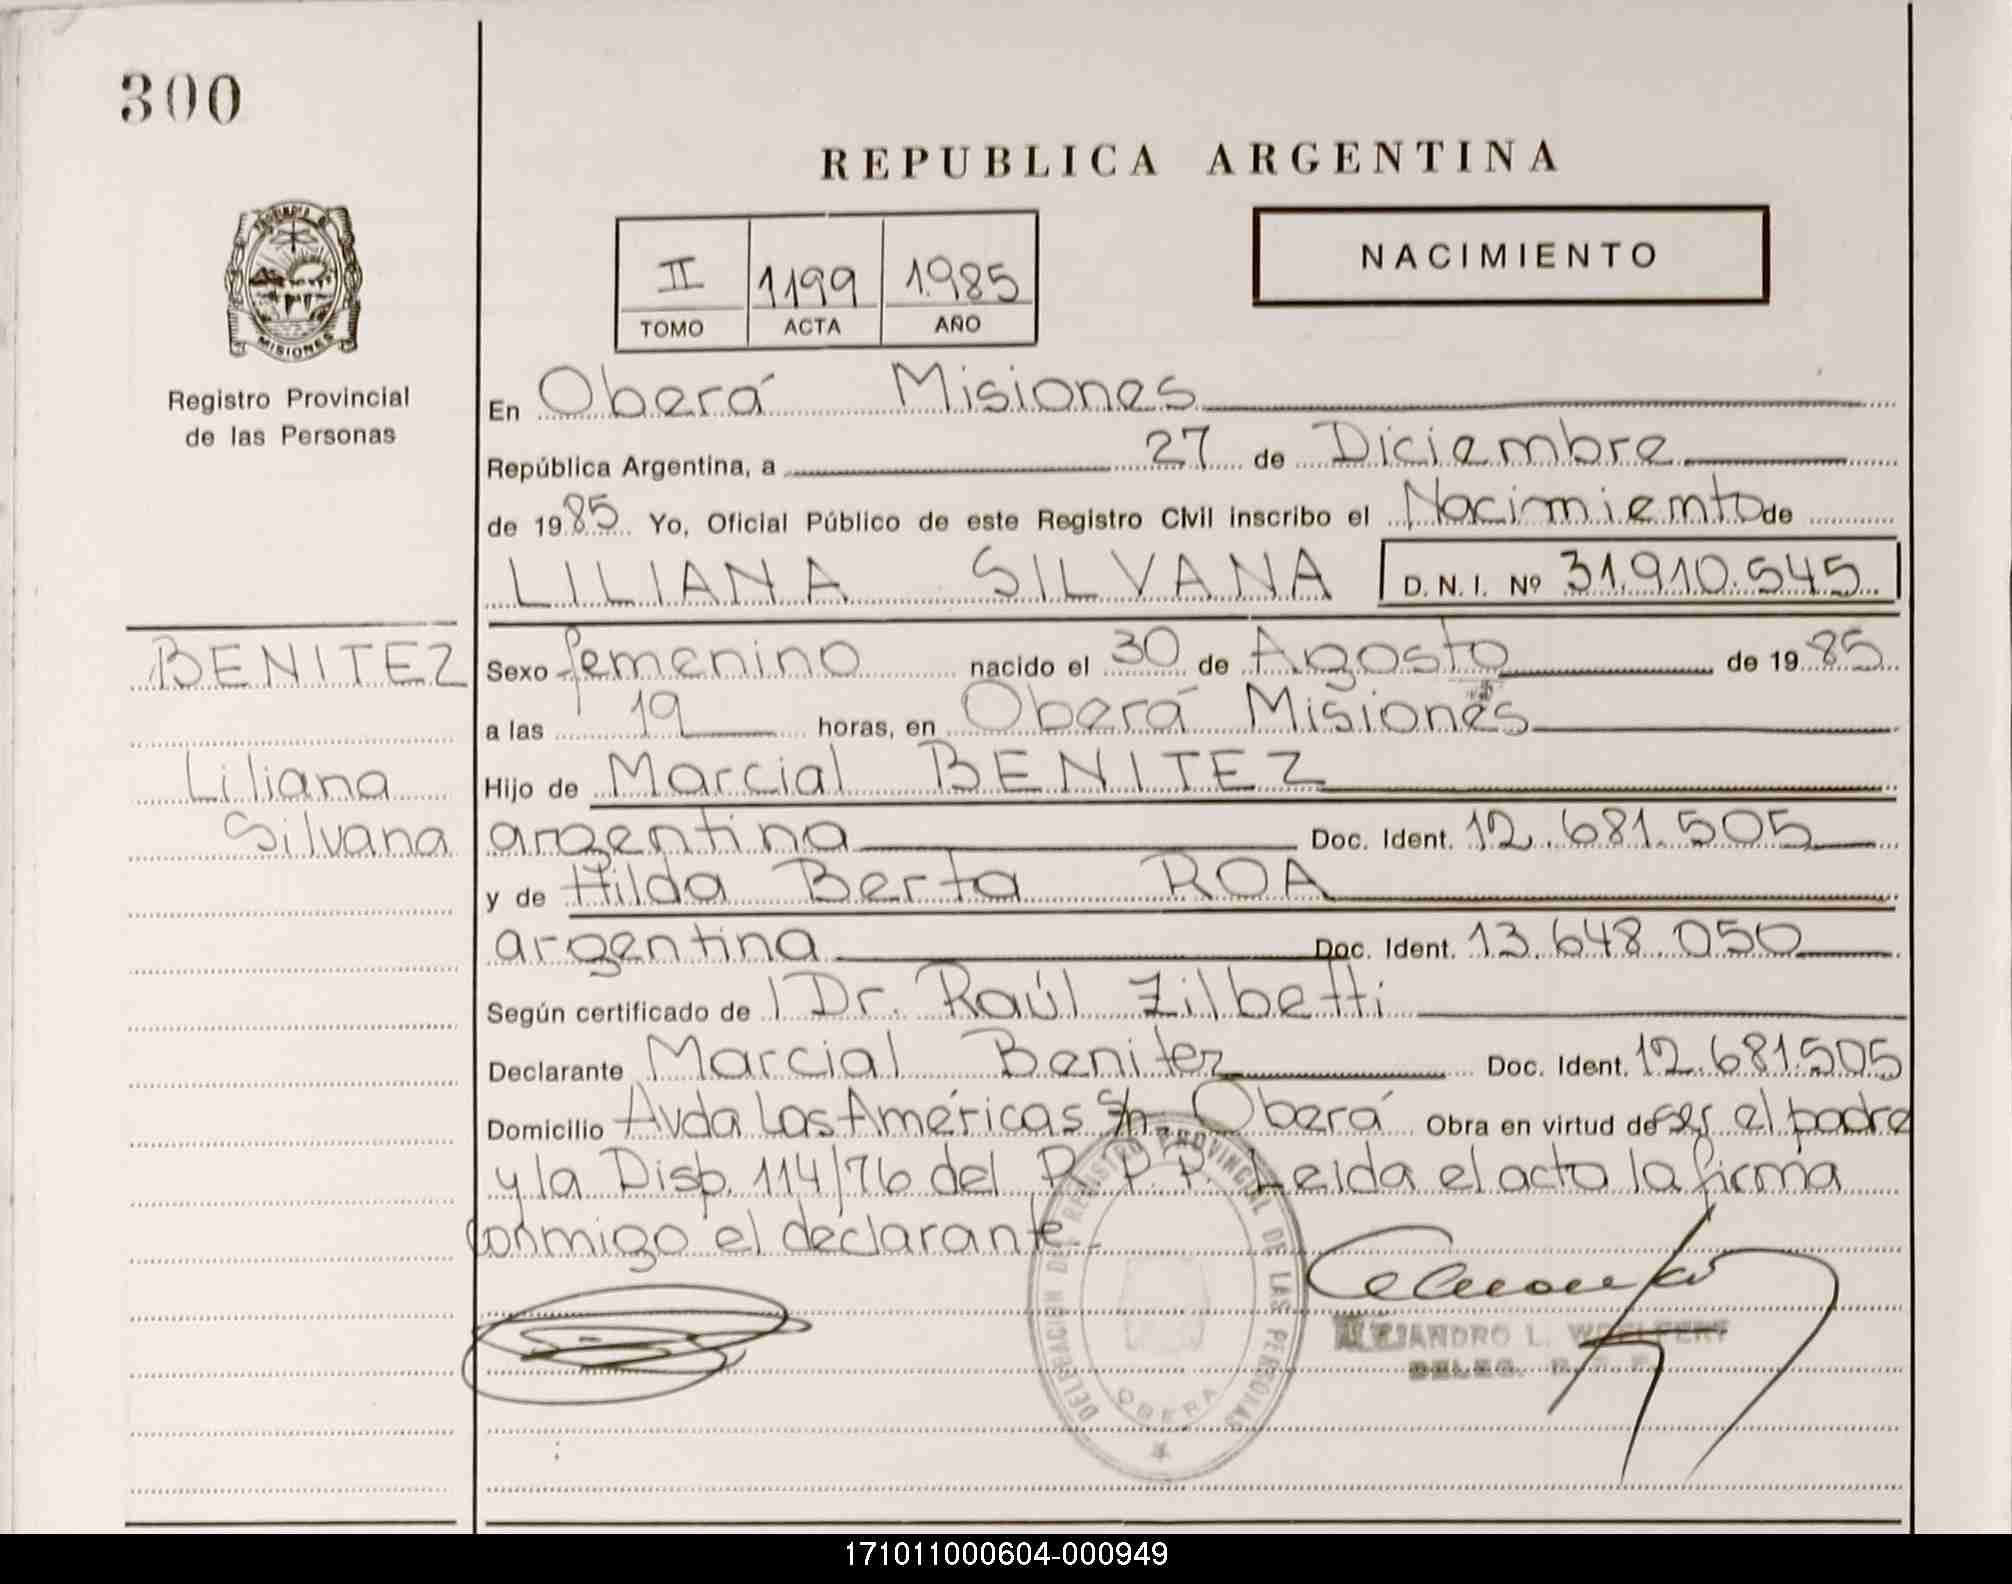 300
REPUBLICA ARGENTINA
NACIMIENTO
II 1199 1.985
TOMO ACTA AÑO
MISIONES
Registro Provincial
de las Personas
En Oberá Misiones
República Argentina, a 27 de Diciembre
de 1985 Yo, Oficial Público de este Registro Civil inscribo el Nacimiento de
LILIANA SILVANA D. N. I. Nº 31.910.545
BENITEZ
Liliana
Silvana
Sexo femenino nacido el 30 de Agosto de 1985
a las 19 horas, en Oberá Misiones
Hijo de Marcial BENITEZ
argentina Doc. Ident. 12.681.505
y de Hilda Berta ROA
argentina Doc. Ident. 13.648.050
Según certificado de Dr. Raúl Zilbetti
Declarante Marcial Benitez Doc. Ident. 12.681.505
Domicilio Avda Las Américas S/n. Oberá Obra en virtud de ser el padre
y la Disp. 114/76 del R. P. P. Leida el acta la firma
conmigo el declarante.
DELEGACION DEL REGISTRO PROVINCIAL DE LAS PERSONAS
OBERA
ALEJANDRO L.
DELEG. R. P. P.
171011000604-000949